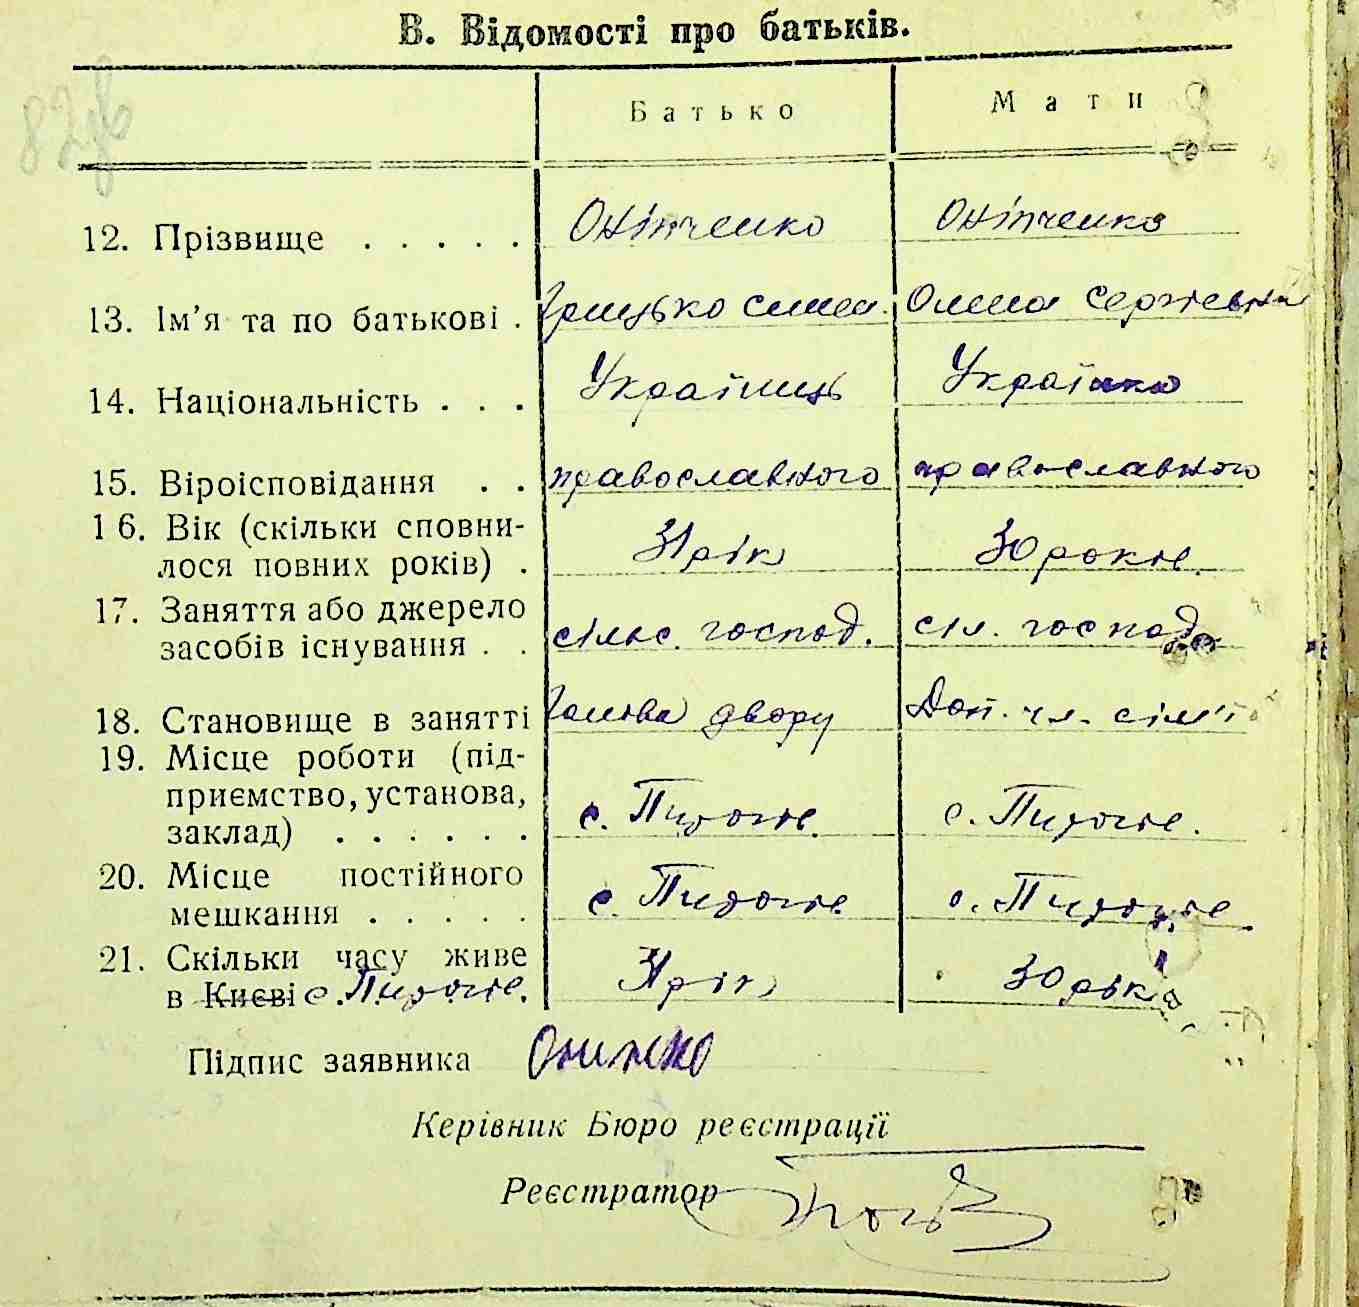 В. Відомості про батьків.
Батько Мати
12. Прізвище . . . . . Оніпченко Оніпченко
13. Ім'я та по батькові . Грицько Олена Сергіевна
14. Національність . . . Українець Українка
15. Віроісповідання . . православного православного
16. Вік (скільки сповни-
лося повних років) . 31 рік 30 років.
17. Заняття або джерело
засобів існування . . сільс. господ. сіл. господ
18. Становище в занятті Голова двору Доп. чл. сім'ї
19. Місце роботи (під-
приємство, установа,
заклад) . . . . . . с. Пирогів. с. Пирогів.
20. Місце постійного
мешкання . . . . . с. Пирогів. с. Пирогів.
21. Скільки часу живе
в Києві с. Пирогів. 31 рік 30 рік
Підпис заявника
Керівник Бюро реєстрації
Реєстратор